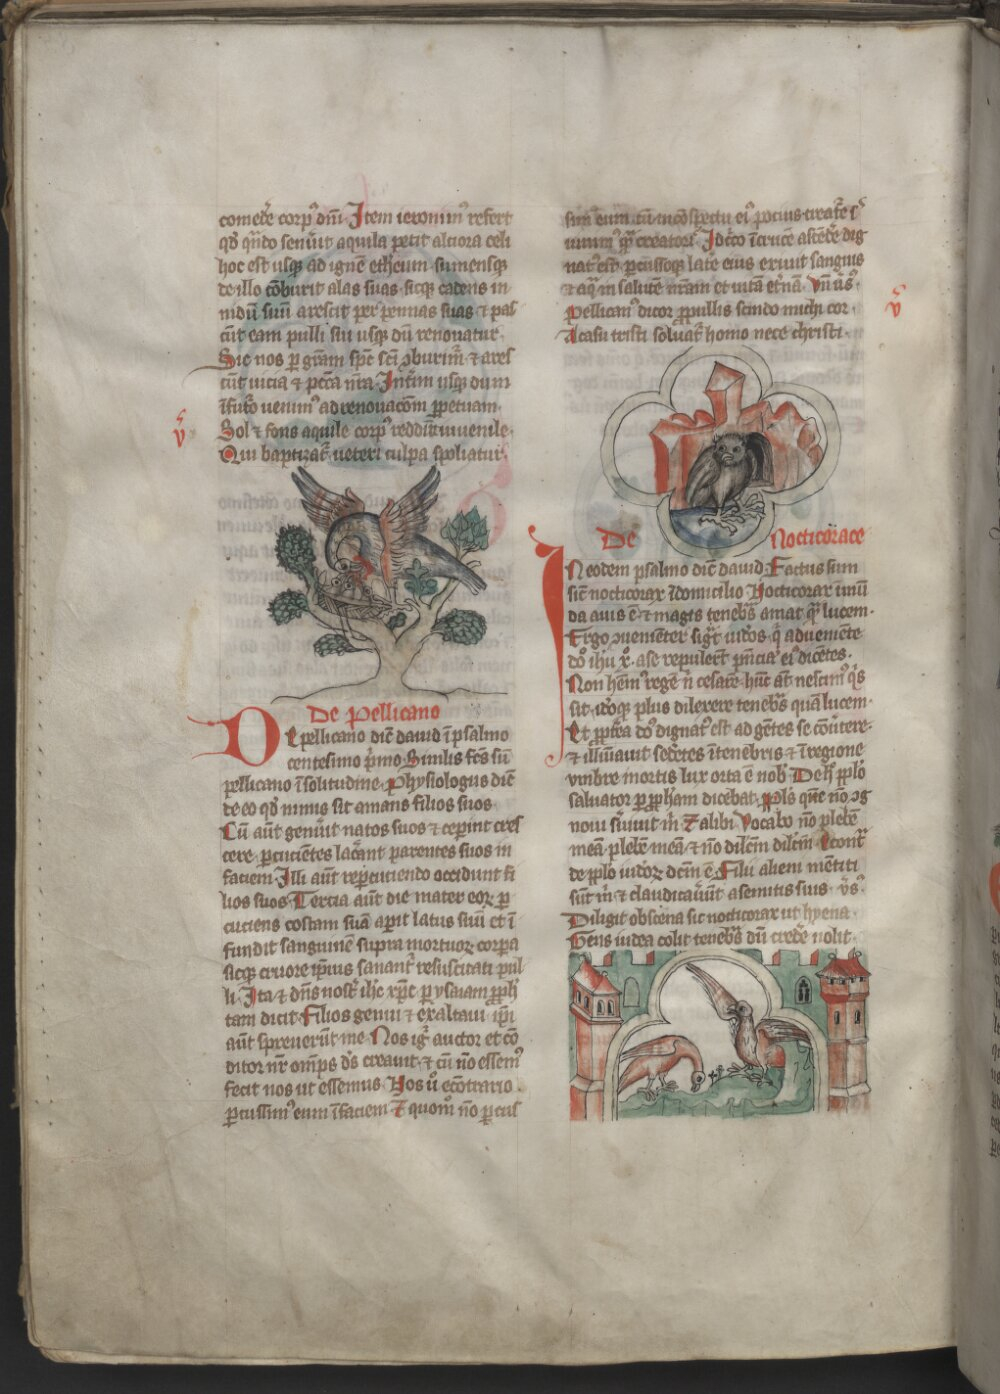 comedẽ corpꝰ dñi. Item ieronimꝰ refert
qđ qñdo senũit aquila petit alciora celi
hoc est usqꝫ ad ignẽ etheum. sumensqꝫ
de illo cõburit alas suas. sicqꝫ cadens in
nidũ suũ arescit per pennas suas ⁊ pas
cũt eam pulli sui usqꝫ dũ renouatur.
Sic nos ꝑ grãm spẽ sẽi ꝯburimꝰ ⁊ ares
cũt uicia ⁊ pccã nrã. Intim usqꝫ dum
ĩ futõ uenimꝰ ad renouacõm ꝑpetuam.
Sol ⁊ fons aquile corpꝰ reddũt iuuenile.
Qui baptizat᷑ ueteri culpa spoliatur.
De Pellicano
De pellicano diẽ dauid ĩ psalmo
centesimo pͥmo. Similis fcs sũ
pellicano ĩ solitudine. Physiologus diẽ
de eo qđ nimis sit amans filios suos.
Cũ aũt genũit natos suos ⁊ ceperint cres
cere. ꝑcuciẽtes lacãnt parentes suos in
faciem. Illi aũt repꝑcuciendo occidunt fi
lios suos. Tercia aũt die mater eoꝝ ꝑ
cuciens costam suã aꝑit latus suũ et ĩ
fundit sanguinẽ supra mortuoꝝ corpa
sicqꝫ cruore ipius sanant᷑ resuscitati pul
li. Ita ⁊ dñs nostꝰ ihc xpc ꝑ ysaiam ꝓph
tam dicit. Filios genui ⁊ exaltaui ipi
aũt spreuerũt me. Nos igꝰ auctor et cõ
ditor nr̃ omps đs creauit. ⁊ cũ nõ essemꝰ
fecit nos ut essemus. Nos ũ econtrario
ꝑcussimꝰ eum ĩ faciem. ⁊ quomõ nõ ꝑcus
simꝰ eum cũ in cõspectu eiꝰ pocius creatẽ sͥ
uimus qͣ creatori. Idcͦco ĩ cruce ascendẽ dig
natꝰ est. ꝑcussoqꝫ latẽ eius exiuit sanguis
⁊ aqͣ in salutẽ nrãm et uitã etnã. Vñ ũsꝰ
Pellicanꝰ dicor ꝓ pullis scindo michi cor.
A casu tristi soluat᷑ homo nece christi.
De Nocticorace
IN eodem psalmo diẽ dauid. Factus sum
sic̃ nocticorax ĩ domicilio. Nocticorax inmũ
da auis ẽ ⁊ magis tenebꝰs amat qͣ lucem.
Ergo ꝯueniẽter sigᷓt iudos. qͥ adueniẽte
dõ ihũ xͦ. a se repulerũt pñciaꝫ eiꝰ dicẽtes.
Non hẽmꝰ regẽ nͥ cesarẽ. hũc aũt nescimꝰ qͥs
sit. idoqꝫ plus dilexere tenebꝰs quã lucem.
Et ꝓptea dõ dignatꝰ est ad gẽtes se cõutere.
⁊ illũiauit sedẽtes ĩ tenebris ⁊ ĩ regione
vmbre mortis lux orta ẽ nob̃. De hͦ pplo
saluator ꝑ ꝓph̃am dicebat. Ppls quẽ nõ ꝯg
noui suiuit m̃. ⁊ alibi. Vocabo nõ plebẽ
meã. plebẽ meã. ⁊ nõ dilcm̃ dilcm̃. Econtͣ
de pplo iudoꝝ dcm̃ ẽ. Filii alieni mẽtiti
sũt m̃ ⁊ claudicaũũt a semitis suis. Vs̃.
Diligit obscena sic nocticorax ut hyena.
Gens iudea colit tenebꝰs dũ credẽ nolit.